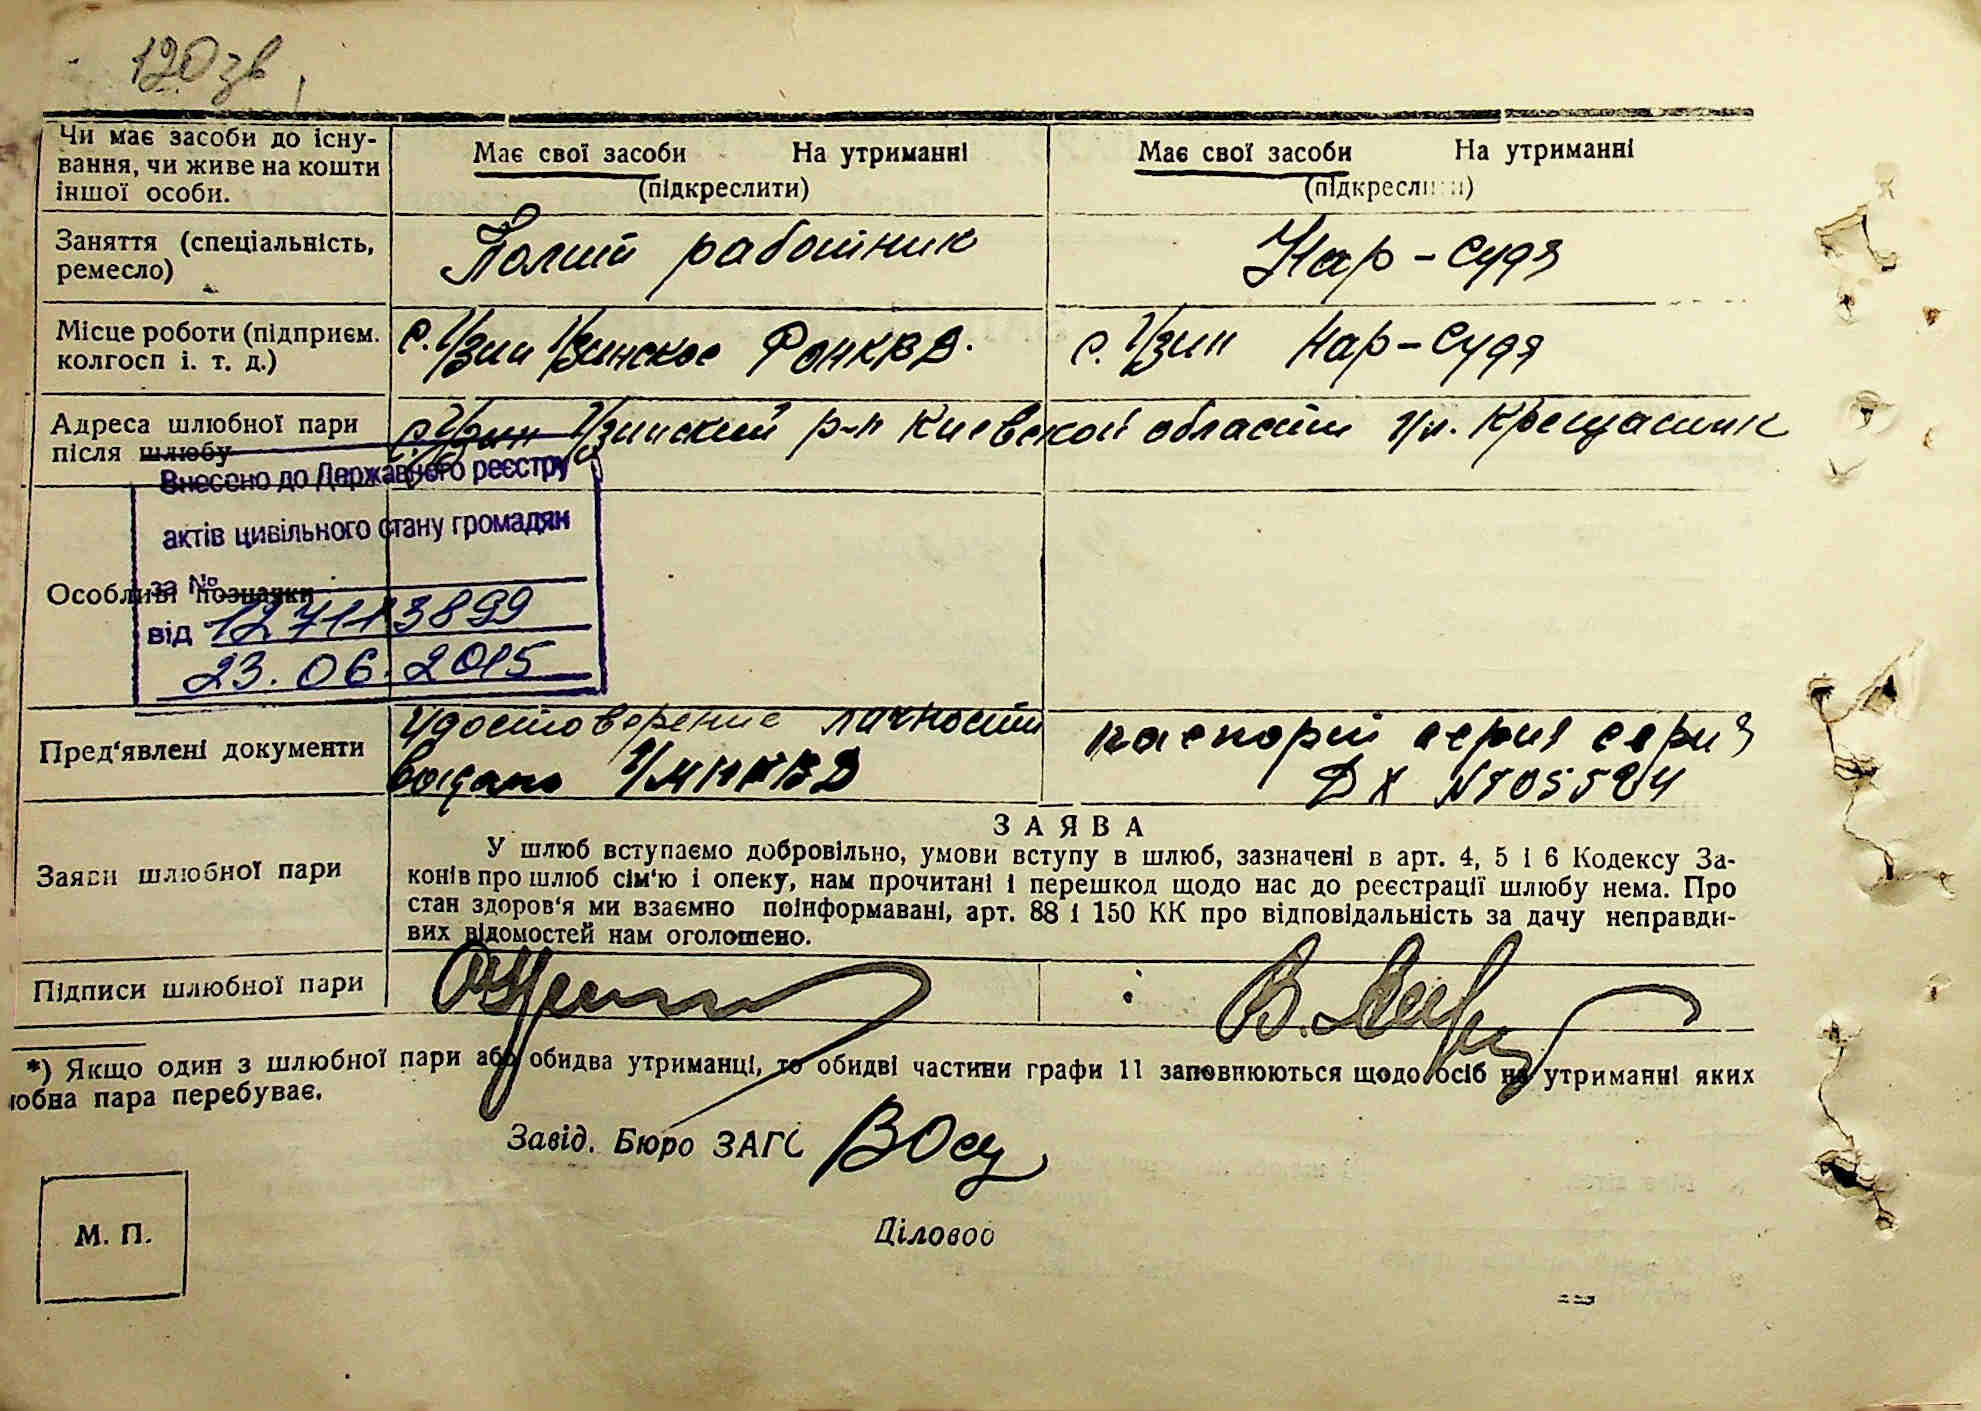 120 зв
Чи має засоби до існу-
вання, чи живе на кошти
іншої особи.
Має свої засоби На утриманні
(підкреслити)
Має свої засоби На утриманні
(підкреслити)
Заняття (спеціальність,
ремесло)
Полит работник
Нар-судя
Місце роботи (підприєм.
колгосп і. т. д.)
с. Узин Узинское РОНКВД.
с. Узин Нар-судя
Адреса шлюбної пари
після шлюбу
с. Узин Узинский р-н Киевской области ул.
Внесено до Державного реєстру
актів цивільного стану громадян
за №
від 127113899
23.06.2015
Особливі позначки
Пред'явлені документи
Удостоверение личности
выдано УМНКВД
паспорт серия серия
ДХ №705524
Заяви шлюбної пари
ЗАЯВА
У шлюб вступаємо добровільно, умови вступу в шлюб, зазначені в арт. 4, 5 і 6 Кодексу За-
конів про шлюб сім'ю і опеку, нам прочитані і перешкод щодо нас до реєстрації шлюбу нема. Про
стан здоров'я ми взаємно поінформавані, арт. 88 і 150 КК про відповідальність за дачу неправди-
вих відомостей нам оголошено.
Підписи шлюбної пари
*) Якщо один з шлюбної пари або обидва утриманці, то обидві частини графи 11 заповнюються щодо осіб на утриманні яких
юбна пара перебуває.
Завід. Бюро ЗАГС
М. П.
Діловод